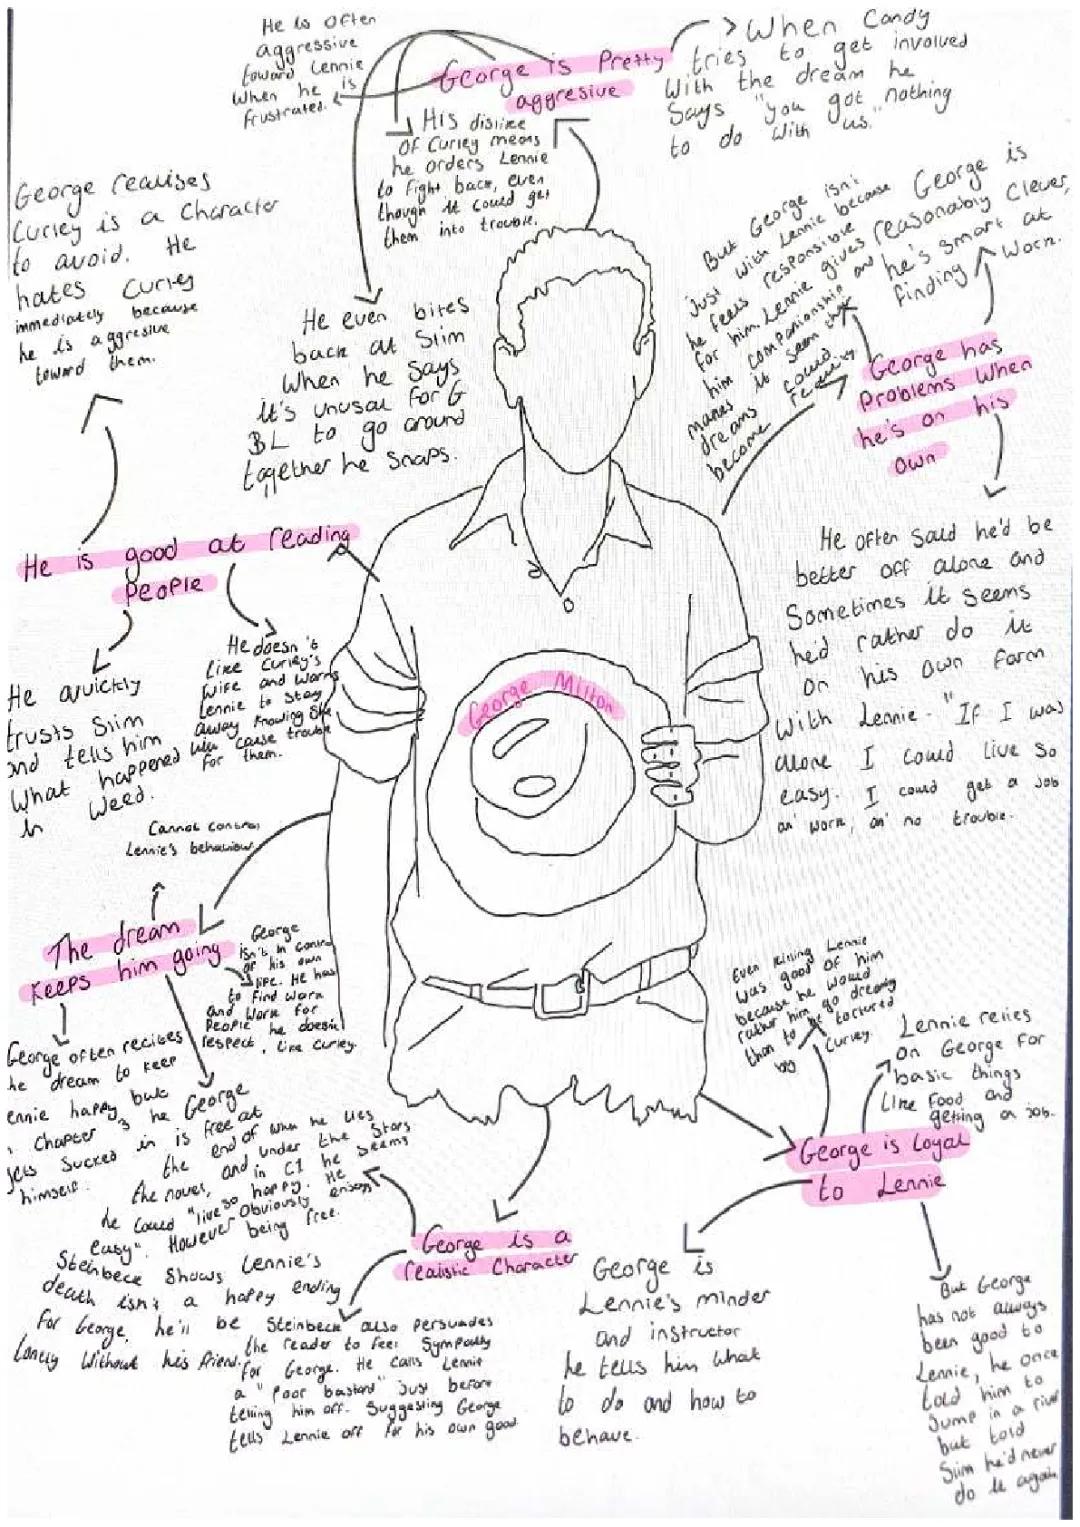 He is often
aggressive
toward Lennie
when he is
frustrated.
George is Pretty
aggresive
His dislike
of Curley means
he orders Lennie
to fight back, even
though it could get
them into trouble.
When Candy
tries to get involved
with the dream he
says "you got nothing
to do with us."
He even bites
back at Slim
when he says
it's unusual for G
BL to go around
together he snaps.
George realises
Curley is a character
to avoid. He
hates Curley
immediately because
he is aggresive
toward them.
He is good at reading
People
He quickly
trusts Slim
and tells him
what happened
in Weed.
He doesn't
like Curley's
wife and warns
Lennie to stay
away knowing she
will cause trouble
for them.
But George isn't
Just with Lennie because
he feels responsible
for him. Lennie gives
him companionship and
makes it seem
dreams could
become reality
George is
reasonably clever,
he's smart at
finding work.
George has
Problems when
he's on his
own
He often said he'd be
better off alone and
Sometimes it seems
he'd rather do it
on his own farm
with Lennie "If I was
alone I could live so
easy. I could get a job
an' work, an' no trouble.
George Milton
Cannot control
Lennie's behaviour
The dream
keeps him going
George
isn't in control
of his own
life. He has
to find work
and work for
people he doesn't
respect, like Curley.
George often recites
he dream to keep
ennie happy but
Chapter 3 he
gets sucked in
himself.
George
is free at
the end of
the novel, and in C1
he could "live so
easy". However
Steinbeck shows Lennie's
death isn't a happy ending
for George, he'll be
lonely without his friend.
George is a
realistic character
when he lies
under the stars
he seems
happy. He
Obviously enjoys
being free.
Steinbeck also persuades
the reader to feel Sympathy
for George. He calls Lennie
a "Poor bastard" just before
telling him off. Suggesting George
tells Lennie off for his own good
George is Loyal
to Lennie
Even killing Lennie
was good of him
because he would
rather him go dreamy
than to be tortured
by Curley.
Lennie relies
on George for
basic things
Like food and
getting a job.
George is
Lennie's minder
and instructor
he tells him what
to do and how to
behave.
But George
has not always
been good to
Lennie, he once
told him to
Jump in a river
but told
Slim he'd never
do it again